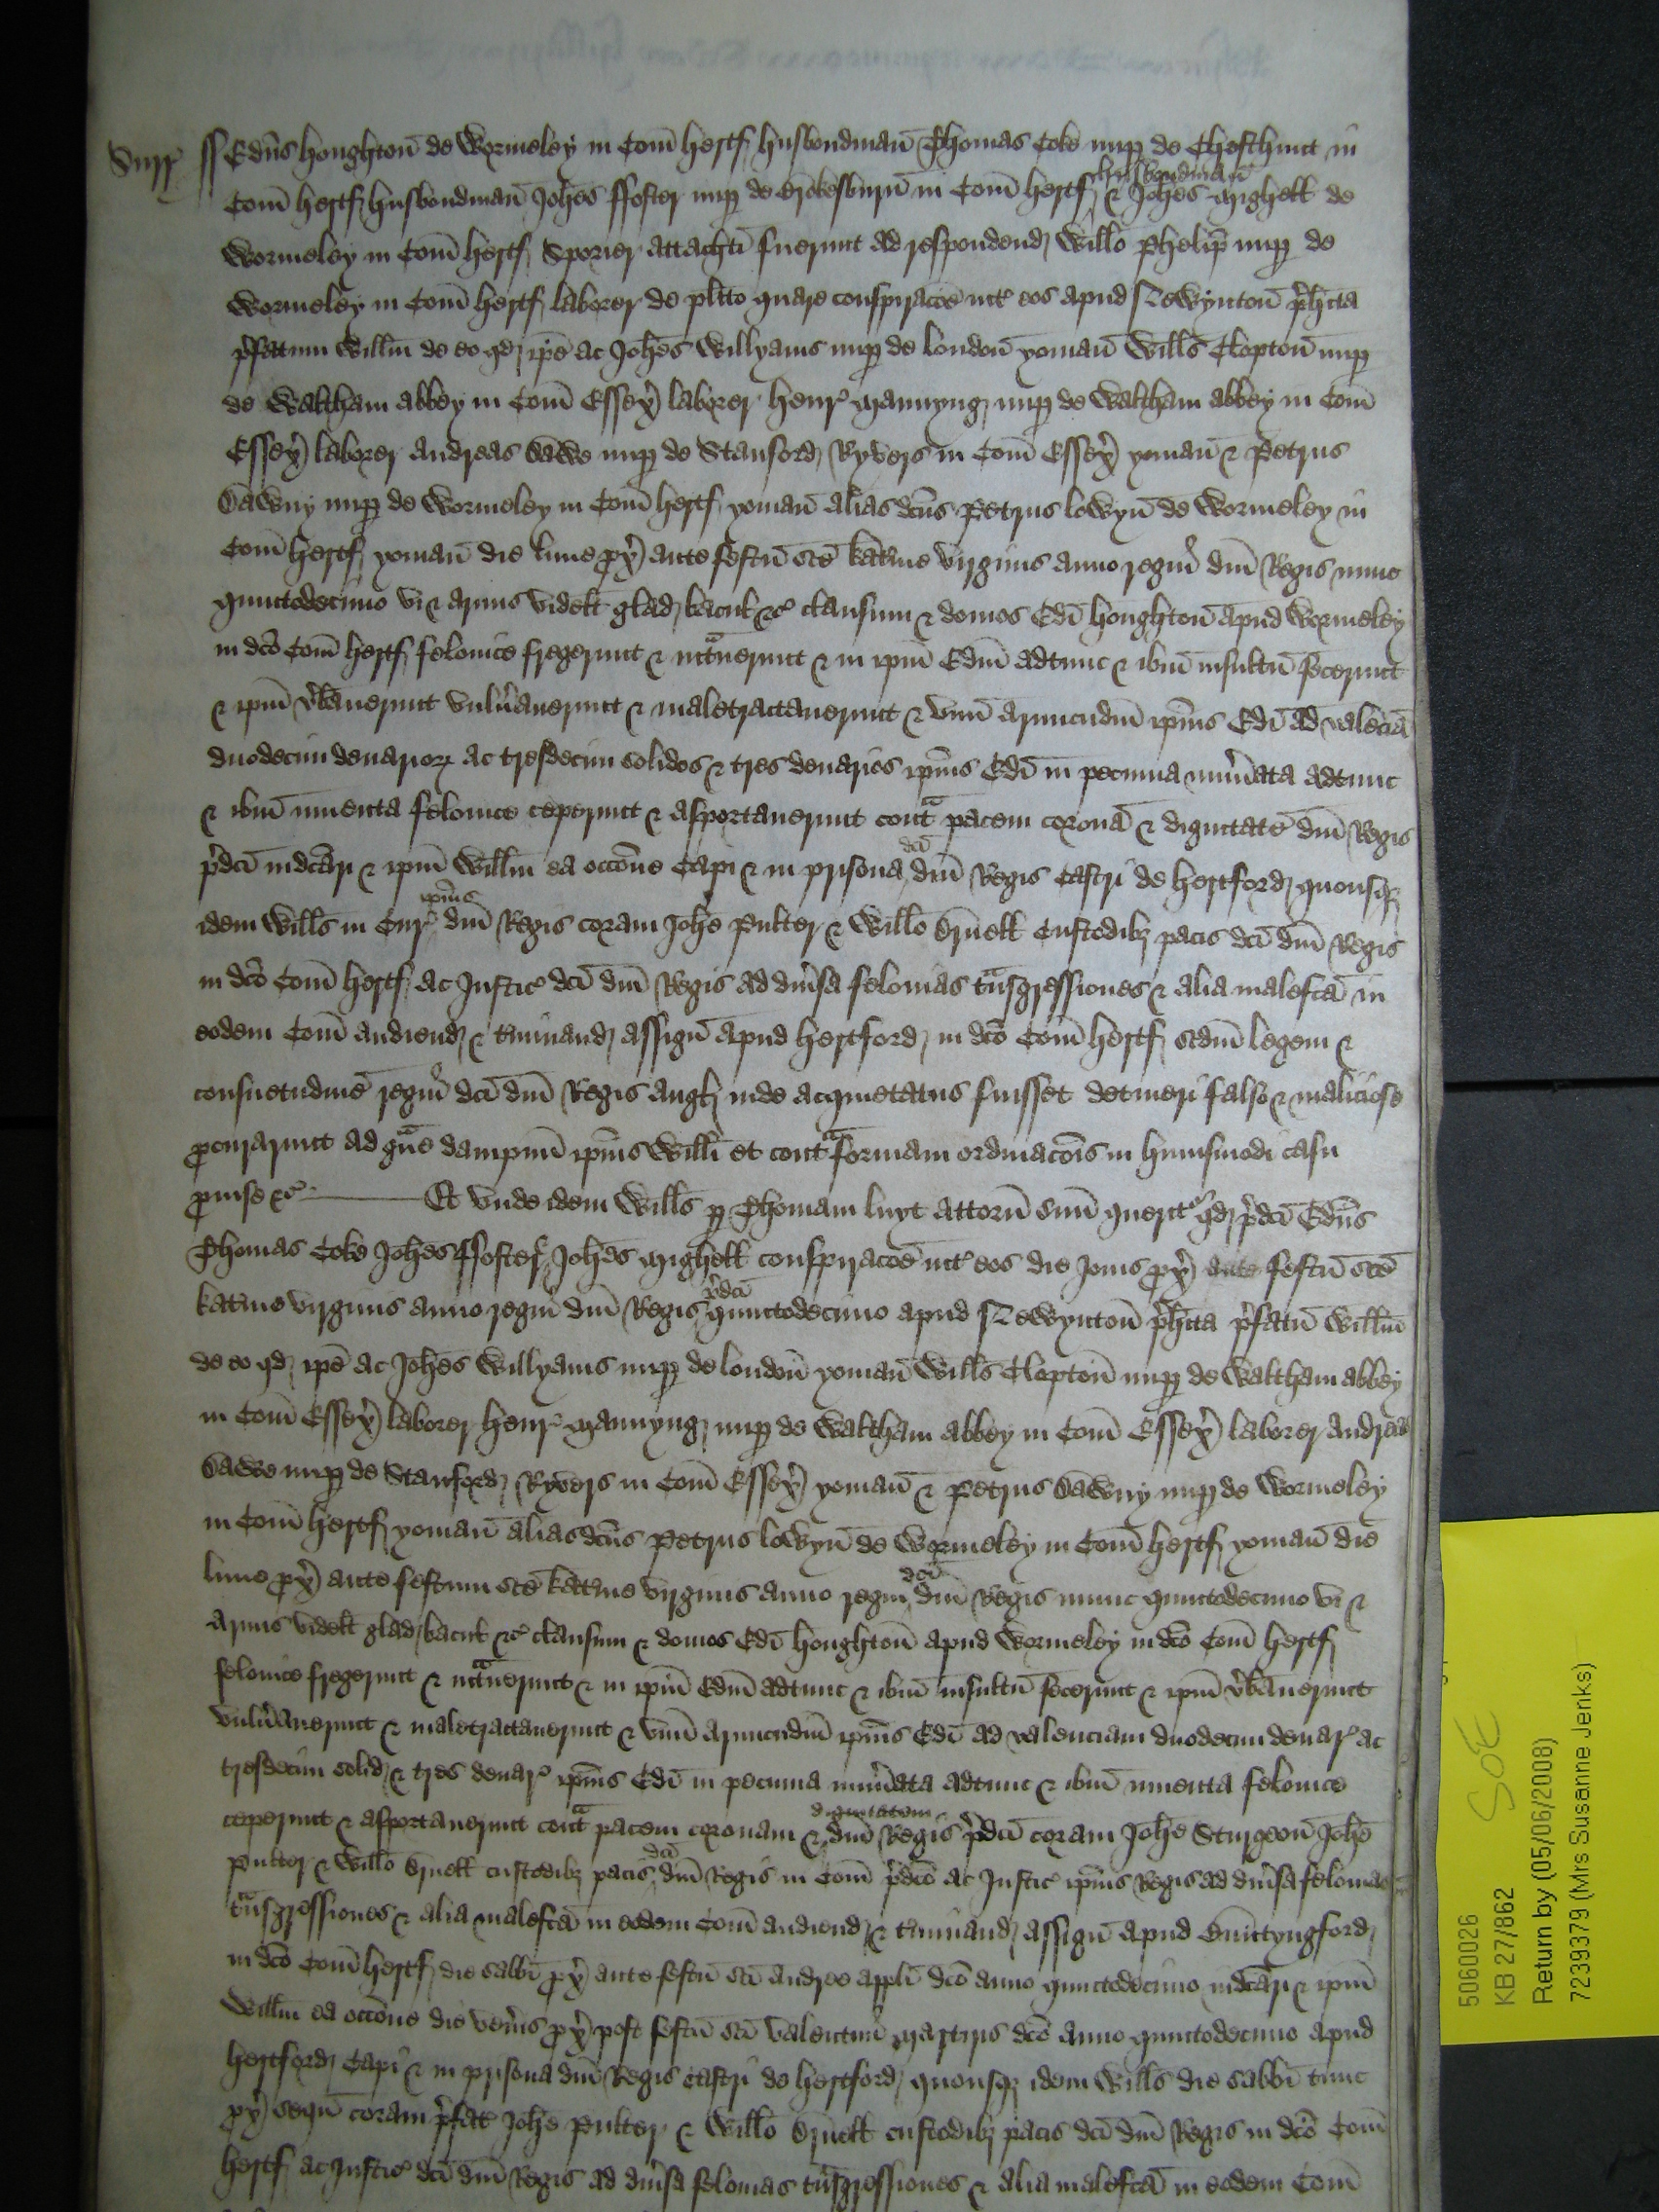 Surr ss Edm̄s Houghton̄ de Wormeley in Com̄ Hertf husbondman̄ Thomas Coke nup de Chesthunt in
Com̄ Hertf husbondman̄ Joh̄es Ffoster nup de Brokesburn̄ in Com̄ Hertf husbondman̄ & Joh̄es Mighell de
Wormeley in Com̄ Hertf Sporier attachti fuerunt ad respondend Willo Phelip̄ nup de
Wormeley in Com̄ Hertf laborer de plito quare conspiracōe int eos apud Newynton̄ p̄hita
p̄fatum Willm̄ de eo qd ip̄e ac Joh̄es Willyams nup de london̄ yoman̄ Wills Clopton̄ nup
de Waltham abbey in Com̄ Essex laborer Henr Mannyng nup de Waltham abbey in Com̄
Essex laborer Andreas Dawe nup de Stanford Ryvers in Com̄ Essex yoman̄ & Petrus
Dawny nup de Wormeley in Com̄ Hertf yoman̄ alias dcūs Petrus lowyn̄ de Wormeley in
Com̄ Hertf yoman̄ die lune prox ante festū scē kat̄ine virginis anno regni dn̄i Regis nunc
quintodecimo vi & armis videlt glad bacul &c clausum & domos Edī Houghton̄ apud Wormeley
in dco Com̄ Hertf felonice fregerunt & int̄uerunt & in ip̄m Edm̄ adtunc & ibm̄ insultū fecerunt
& ip̄m v̄bauerunt vuln̄auerunt & maletractauerunt & vnū armicudiū ip̄ius Edī ad valēciā
duodecim denarior ac tresdecim solidos & tres denarios ip̄ius Edī in pecunia nūi̅ata adtunc
& ibm̄ inuenta felonice ceperunt & asportauerunt cont̄ pacem coronā & dignitatē dn̄i Regis
p̄dcī indcāri & ip̄m Willm̄ ea occōne Capi & in prisona dcī dn̄i Regis Castri de Hertford quousq
idem Wills in Cur ip̄ius dn̄i Regis coram Joh̄e Pulter & Willo Bruell Custodib pacis dcī dn̄i Regis
in dco Com̄ Hertf ac Justic dcī dn̄i Regis ad diu̅sa felonias t̄nsgressiones & alia malefcā in
eodem Com̄ audiend & t̄minand assign̄ apud Hertford in dco Com̄ Hertf scdm̄ legem &
consuetudinē regni dcī dn̄i Regis Angl inde acquietatus fuisset detineri falso & maliciose
procurarunt ad ḡue dampnū ip̄ius Willi et cont̄ formam ordinacōis in huiusmodi casu
prouise &c Et vnde idem Wills p Thomam luyt attorn̄ suū querit qd p̄dcī Edm̄s
Thomas Coke Joh̄es Ffoster & Joh̄es Mighell conspiracōe int eos die Jouis prox ante festū scē
kat̄ine virginis anno regni dn̄i Regis p̄dcī quintodecimo apud Newynton̄ p̄hita p̄fatū Willm̄
de eo qd ip̄e ac Joh̄es Willyams nup de london̄ yoman̄ Wills Clopton̄ nup de Waltham abbey
in Com̄ Essex laborer Henr Mannyng nup de Waltham abbey in Com̄ Essex laborer Andreas
Dawe nup de Stanford Ryvers in Com̄ Essex yoman̄ & Petrus Dawny nup de Wormeley
in Com̄ Hertf yoman̄ alias dcūs Petrus lowyn̄ de Wormeley in Com̄ Hertf yoman̄ die
lune prox ante festum scē kat̄ine virginis anno regni dcī dn̄i Regis nunc quintodecimo vi &
armis videlt glad bacul &c clausum & domos Edī Houghton̄ apud Wormeley in dco Com̄ Hertf
felonice fregerunt & int̄uerunt & in ip̄m Edm̄ adtunc & ibm̄ insultū fecerunt & ip̄m v̄bauerunt
vuln̄auerunt & maletractauerunt & vnū armicudiū ip̄ius Edī ad valenciam duodecim denar ac
tresdecim solid & tres denar ip̄ius Edī in pecunia nūi̅ata adtunc & ibm̄ inuenta felonice
ceperunt & asportauerunt cont̄ pacem coronam & dignitatem dn̄i Regis p̄dcī coram Joh̄e Sturgeon̄ Joh̄e
Pulter & Willo Bruell custodib pacis dcī dn̄i Regis in Com̄ p̄dco ac Justic ip̄ius Regis ad diu̅sa felonias
t̄nsgressiones & alia malefcā in eodem Com̄ audiend & t̄minand assign̄ apud Buntyngford
in dco Com̄ Hertf die sabbī prox ante festū scī Andree applī dco anno quintodecimo indcāri & ip̄m
Willm̄ ea occōne die ven̄is prox post festū scī Valentini Martiris dco anno quintodecimo apud
Hertford Capi & in prisona dn̄i Regis castri de Hertford quousq idem Wills die sabbī tunc
prox seqū coram p̄fat Joh̄e Pulter & Willo Bruell custodib pacis dcī dn̄i Regis in dco Com̄
Hertf ac Justic dcī dn̄i Regis ad diu̅sa felonias t̄nsgressiones & alia malefcā in eodem Com̄
SoE
5060026
KB 27/862
Return by (05/06/2008)
7239379 (Mrs Susanne Jenks)